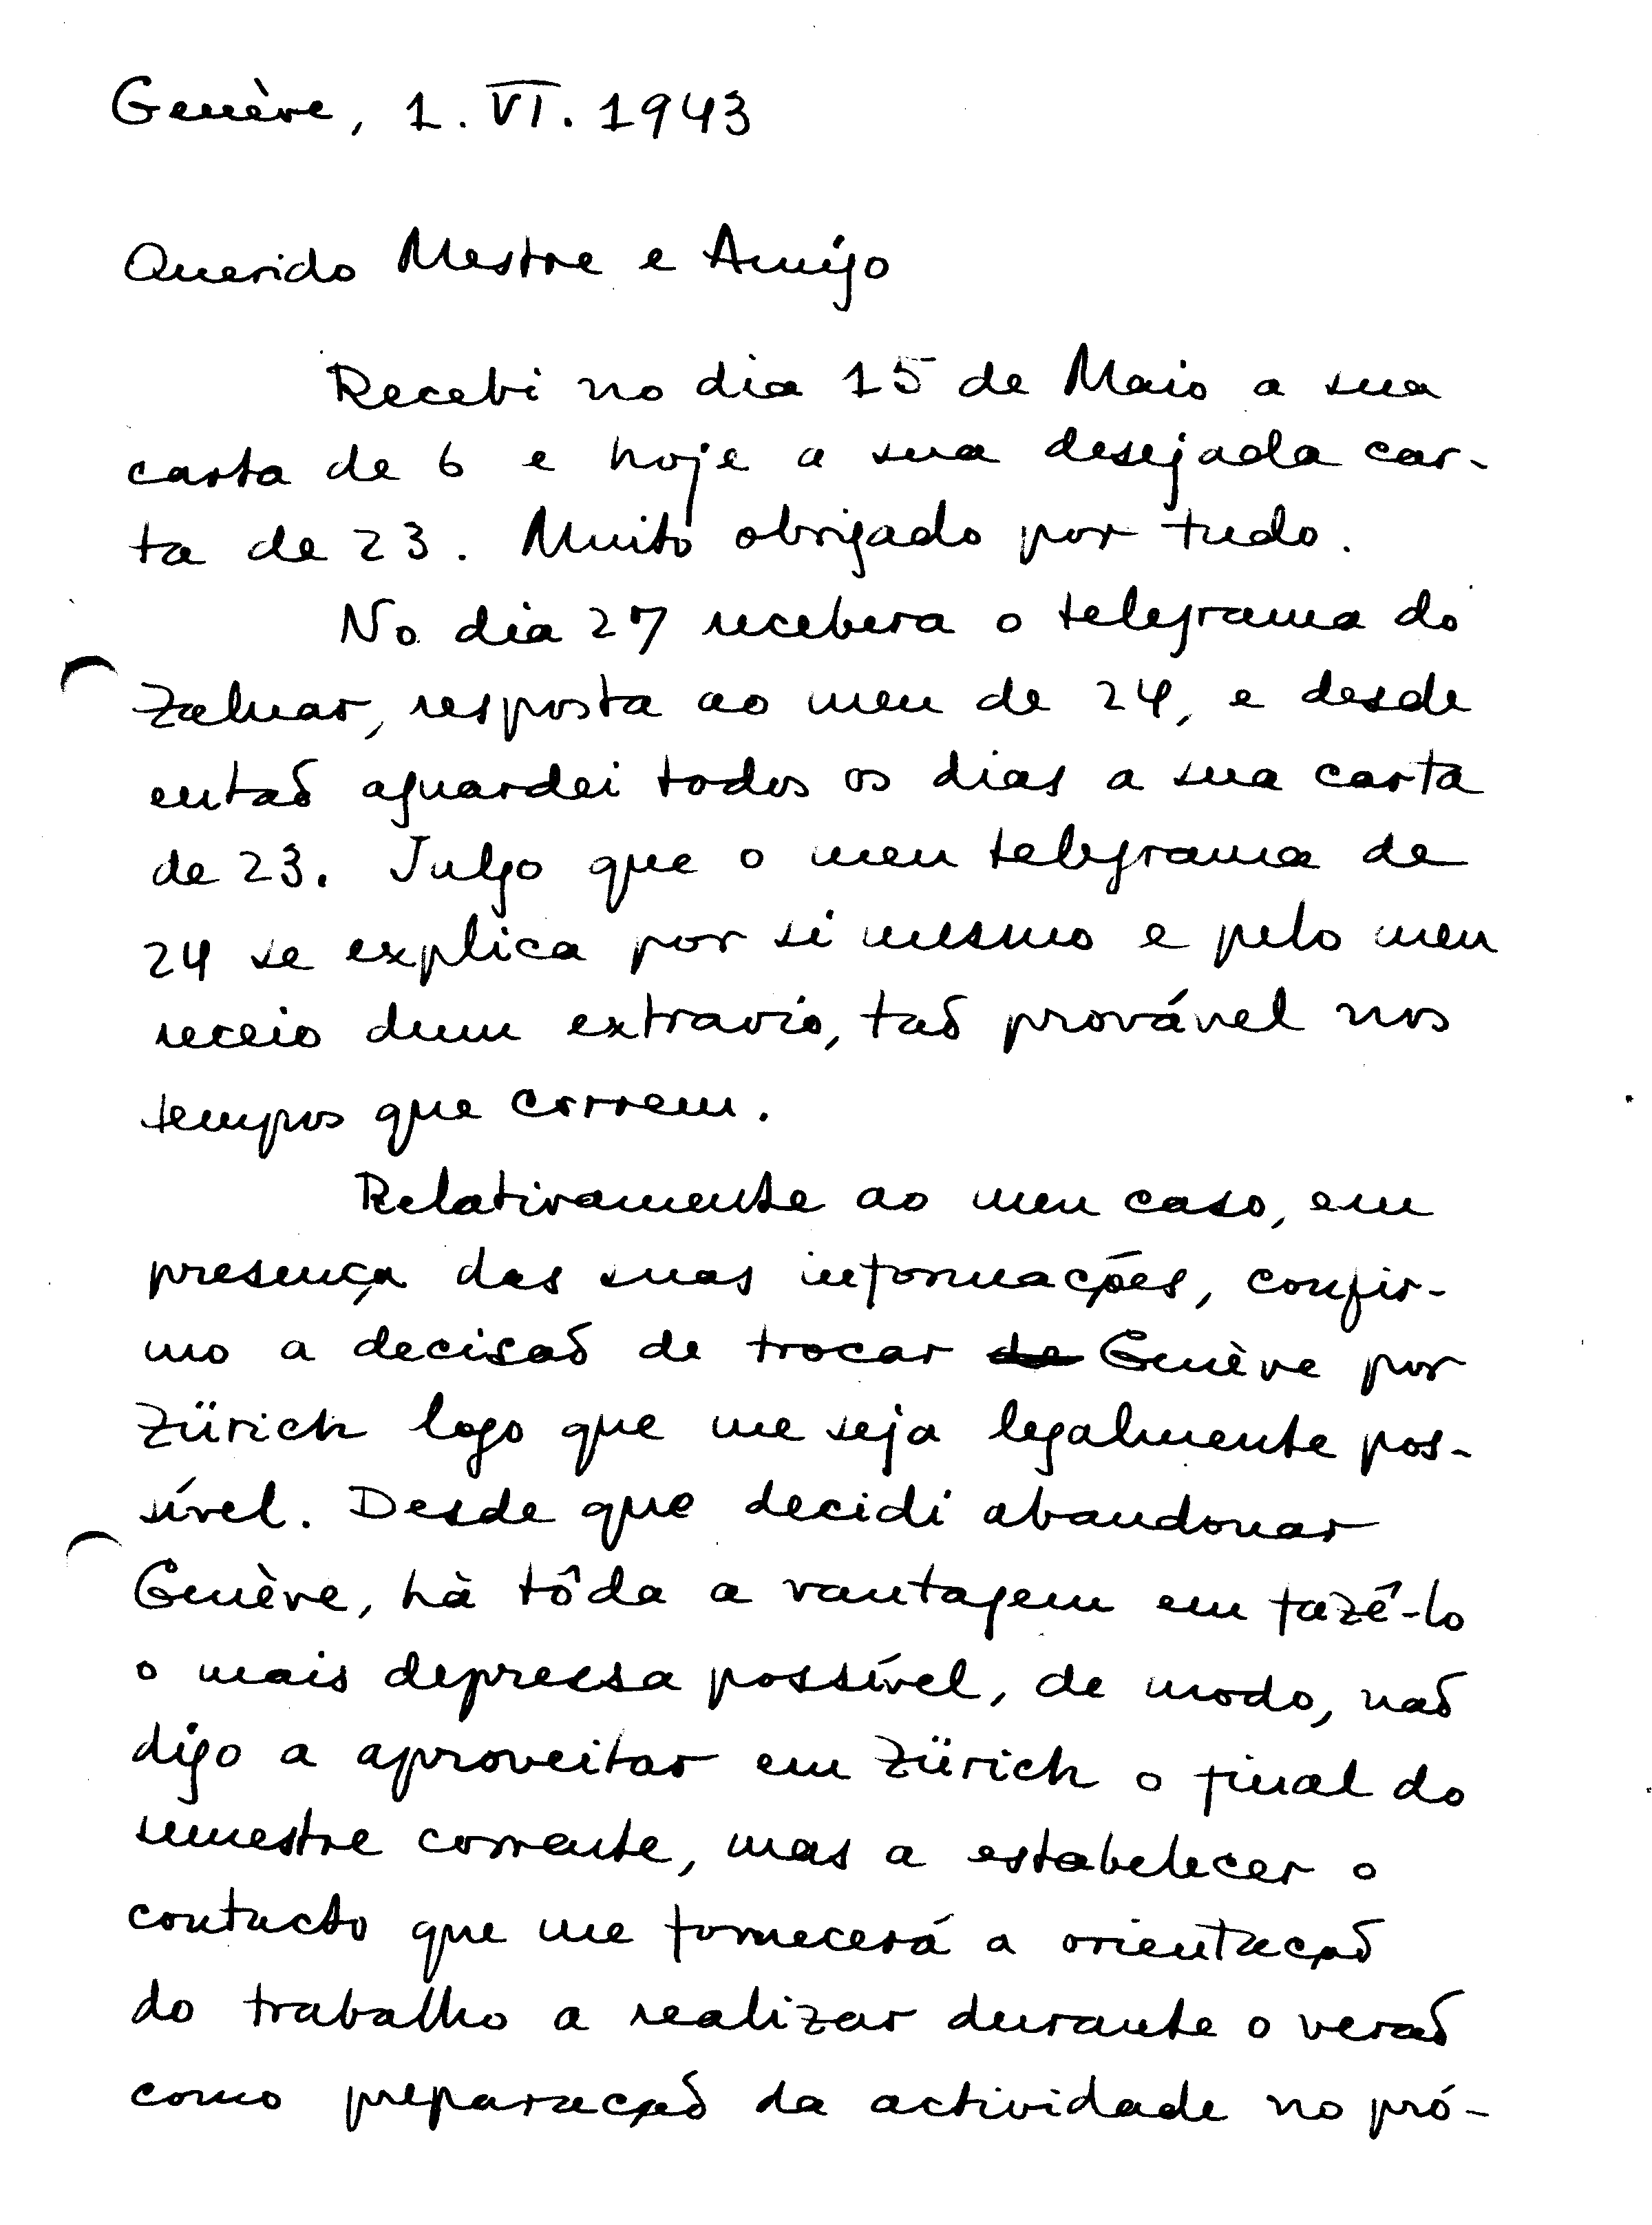 Genève, 1. VI. 1943
Querido Mestre e Amigo
Recebi no dia 15 de Maio a sua
carta de 6 e hoje a sua desejada car-
ta de 23. Muito obrigado por tudo.
No dia 27 recebera o telegrama do
Zaluar, resposta ao meu de 24, e desde
então aguardei todos os dias a sua carta
de 23. Julgo que o meu telegrama de
24 se explica por si mesmo e pelo meu
receio dum extravio, tão provável nos
tempos que correm.
Relativamente ao meu caso, em
presença das suas informações, confir-
mo a decisão de trocar de Genève por
Zürich logo que me seja legalmente pos-
sível. Desde que decidi abandonar
Genève, hà tôda a vantagem em fazê-lo
o mais depressa possível, de modo, não
digo a aproveitar em Zürich o final do
semestre corrente, mas a estabelecer o
contacto que me fornecerá a orientação
do trabalho a realizar durante o verão
como preparação da actividade no pró-